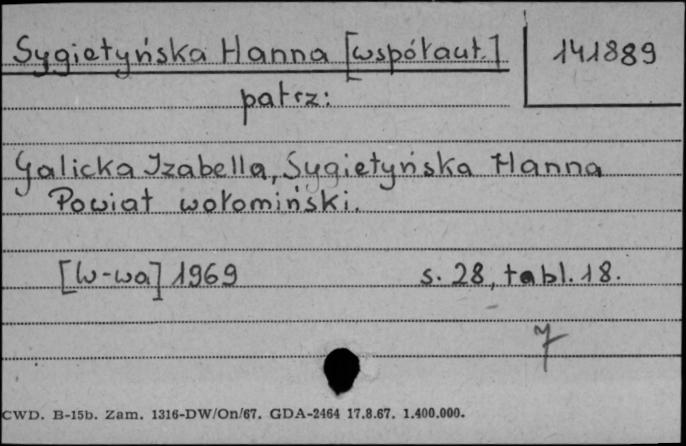 Sygietyńska Hanna [współaut.] 141889
patrz:
Galicka Izabella, Sygietyńska Hanna
Powiat wołomiński.
[W-wa] 1969 s. 28, tabl. 18.
7
CWD. B-15b. Zam. 1316-DW/On/67. GDA-2464 17.8.67. 1.400.000.